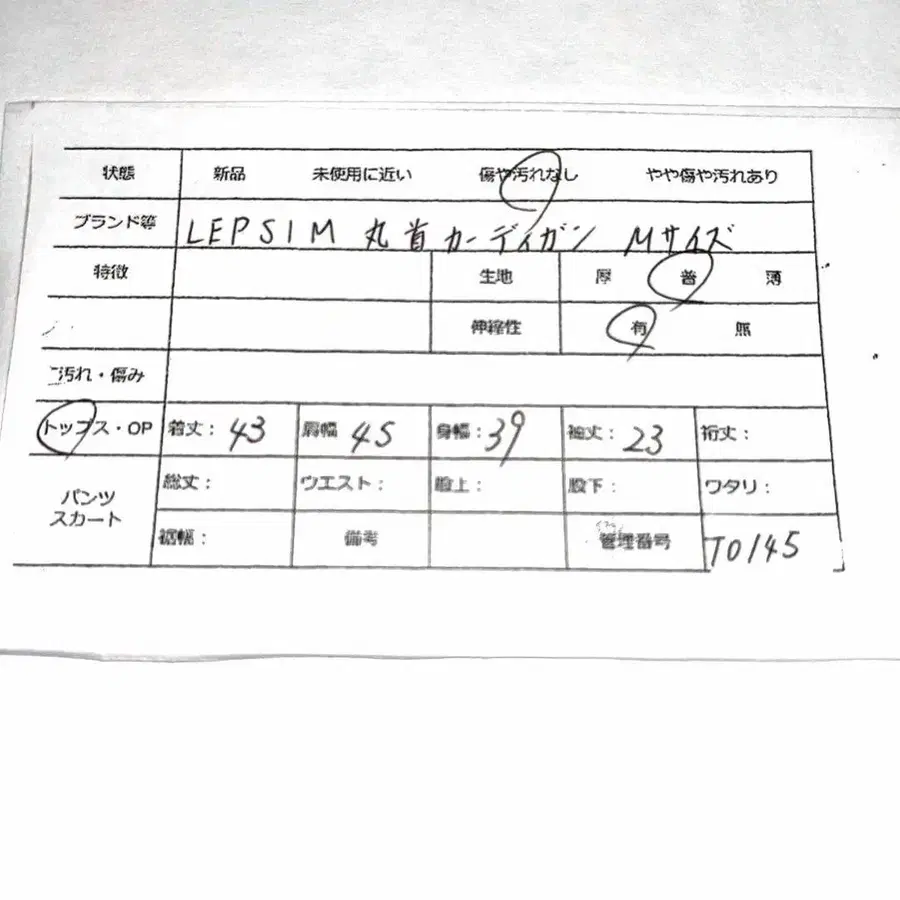 状態 新品 未使用に近い 傷や汚れなし やや傷や汚れあり
ブランド等 LEPSIM 丸首カーディガン Mサイズ
特徴 生地 厚 普 薄
伸縮性 有 無
汚れ・傷み
トップス・OP 着丈: 43 肩幅 45 身幅: 39 袖丈: 23 裄丈:
パンツ スカート 総丈: ウエスト: 股上: 股下: ワタリ:
裾幅: 備考 管理番号 T0145